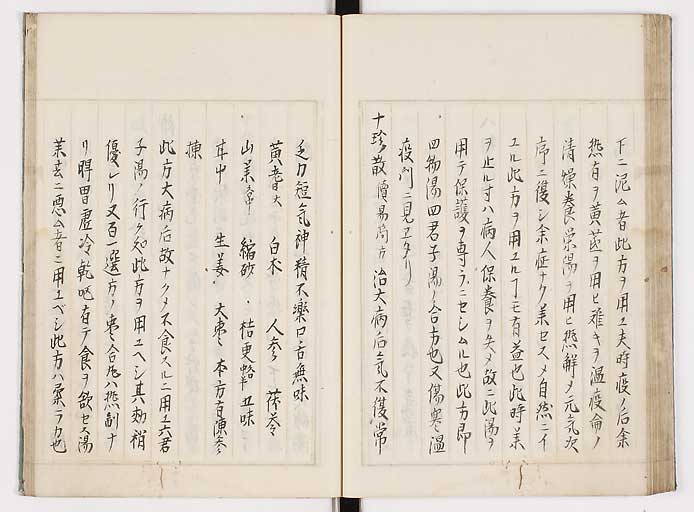 下ニ泥ム者此方ヲ用ユ夫時疫ノ后余
熱有ヲ黄芪ヲ用ヒ難キヲ温疫論ノ
清燥養栄湯ヲ用ヒ熱解シテ元気次
序ニ復シ余症ナク薬セスシテ自然ニイ
ユル此方ヲ用ユルコモ有益也此時薬
ヲ止ル寸ハ病人保養ヲ失フ故ニ此湯ヲ
用テ保護ヲ専ラニセシムル也此方即
四物湯四君子湯ノ合方也又傷寒温
疫門ニ見エタリ
十珍散 簡易方 治大病后気不復常
乏力短気神精不楽口舌無味
黄耆大 白朮 人参 茯苓
山薬 縮砂 桔更 五味
甘中 生姜 大棗 本方有
此方大病后故ナクシテ不食スルニ用ユ六君
子湯ノ行ケヌ処此方ヲ用ユヘシ其効稍
優レリ又百一選方ノ棗合ハ熱割ナ
リ脾胃虚冷乾呕有テ食ヲ欲セス湯
薬ニ悪ム者ニ用ユベシ此方ハ也